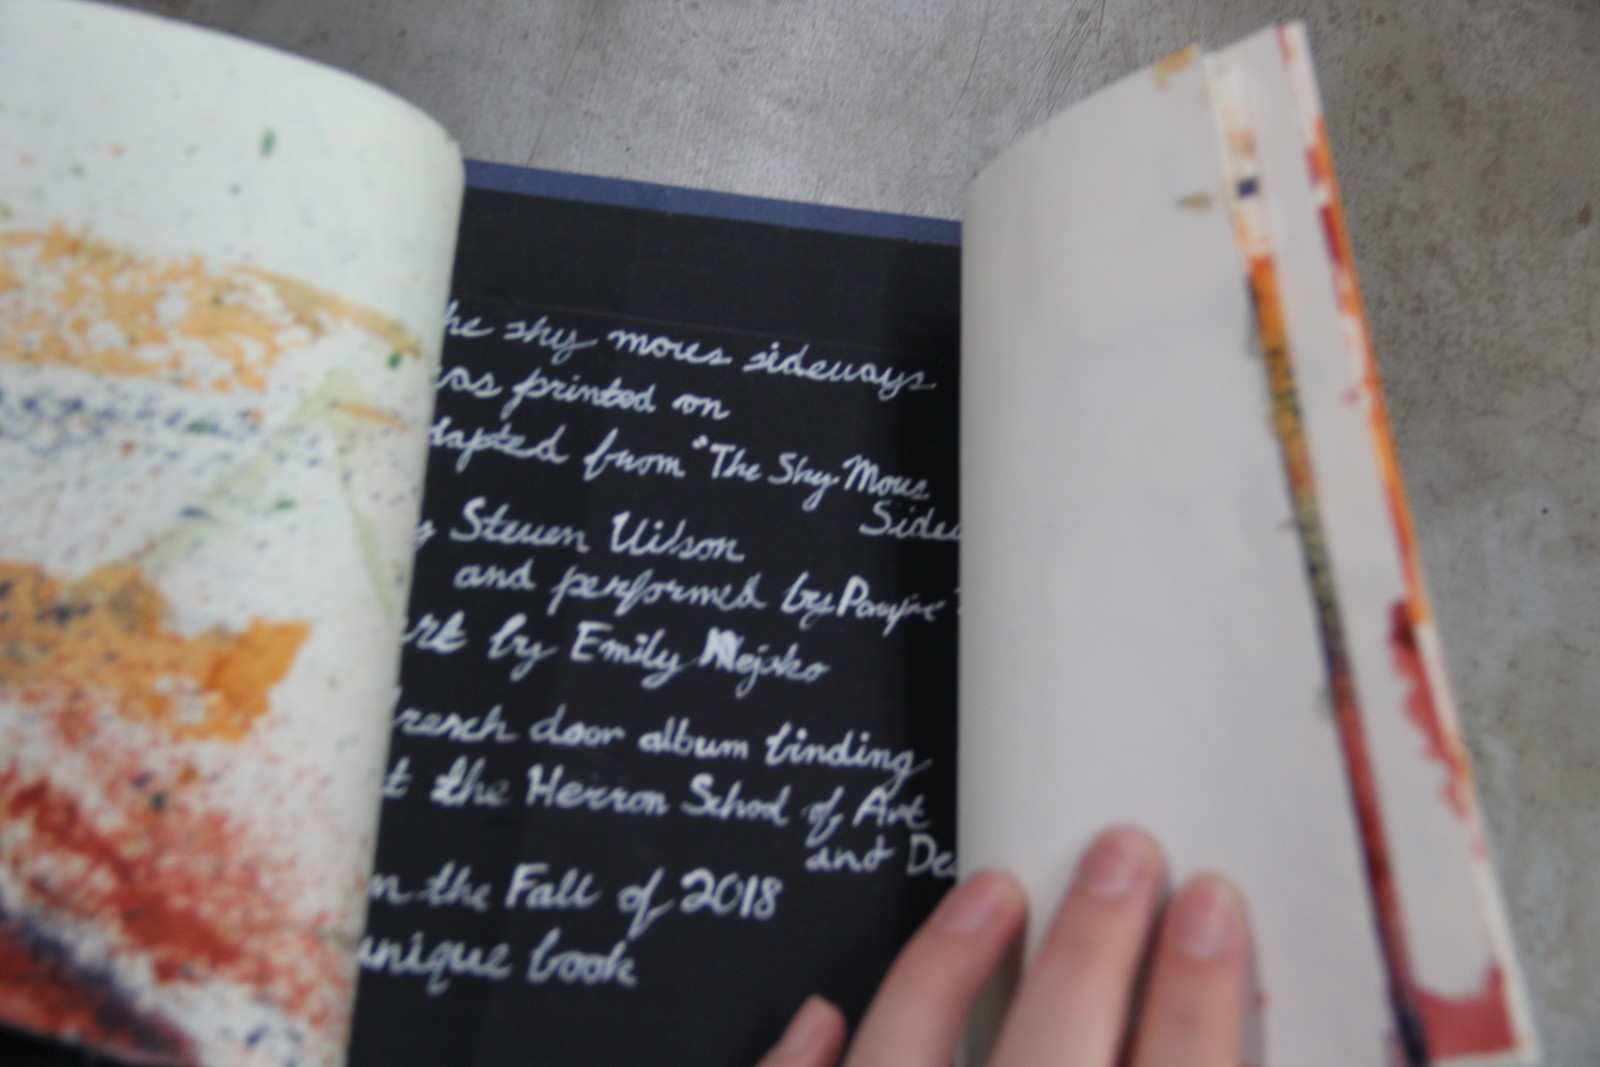 he sky moves sideways
as printed on
dapted from "The Sky Moves
Sidew
y Steven Wilson
and performed by
rt by Emily Nejako
french door album binding
t the Herron School of Art
and De
n the Fall of 2018
unique book